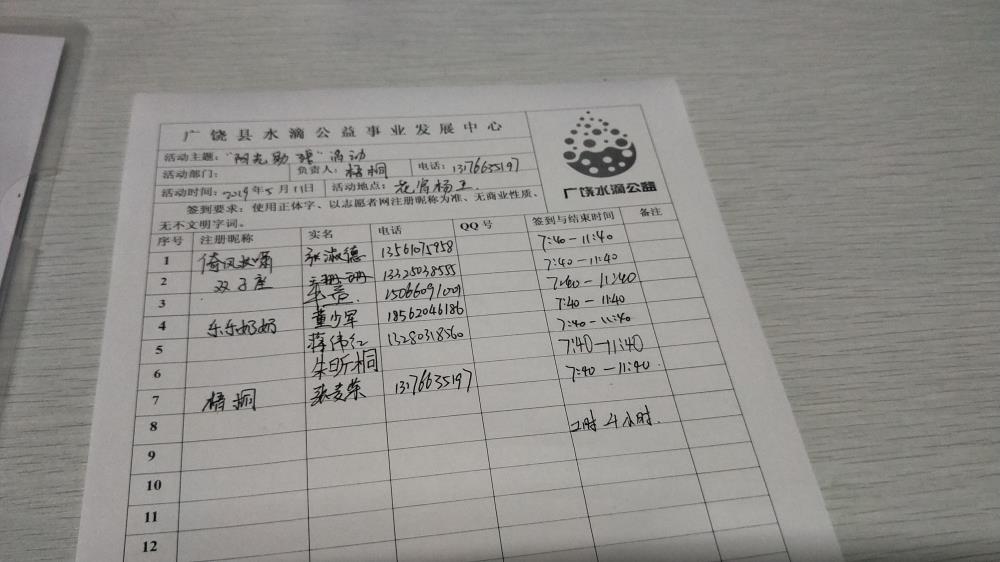 广饶县水滴公益事业发展中心
活动主题: "阳光助残"活动
活动部门: 负责人: 梧桐 电话: 13176635197
活动时间: 2019年5月11日 活动地点: 花官杨王.
签到要求: 使用正体字、以志愿者网注册昵称为准、无商业性质、
无不文明字词。
广饶水滴公益
序号 注册昵称 实名 电话 QQ号 签到与结束时间 备注
1 倚风长啸 张淑德 13561075958 7:40-11:40
2 双子座 13325038555 7:40-11:40
3 15066091009 7:40-11:40
4 乐乐奶奶 董少军 18562046186 7:40-11:40
5 蒋伟红 13280318560 7:40-11:40
6 朱昕桐 7:40-11:40
7 梧桐 张麦荣 13176635197 7:40-11:40
8 4小时.
9
10
11
12